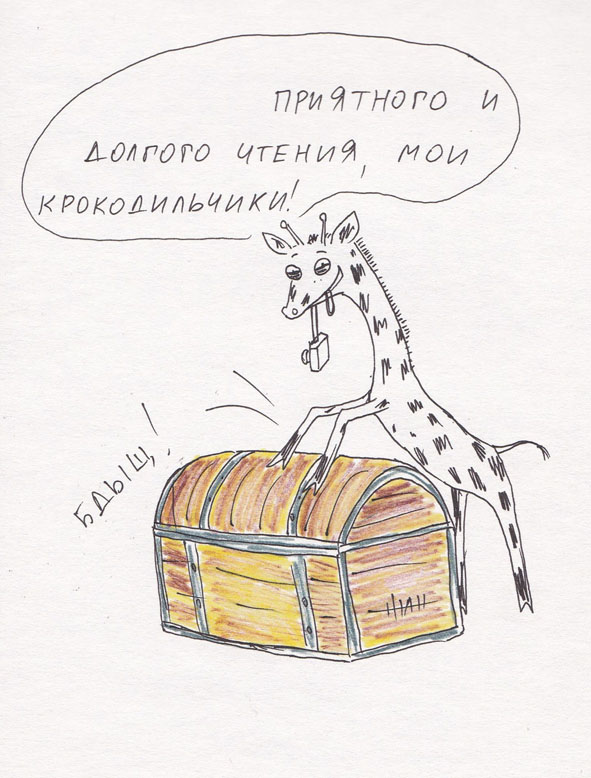 ПРИЯТНОГО И
ДОЛГОГО ЧТЕНИЯ, МОИ
КРОКОДИЛЬЧИКИ!
БДЫЩ!